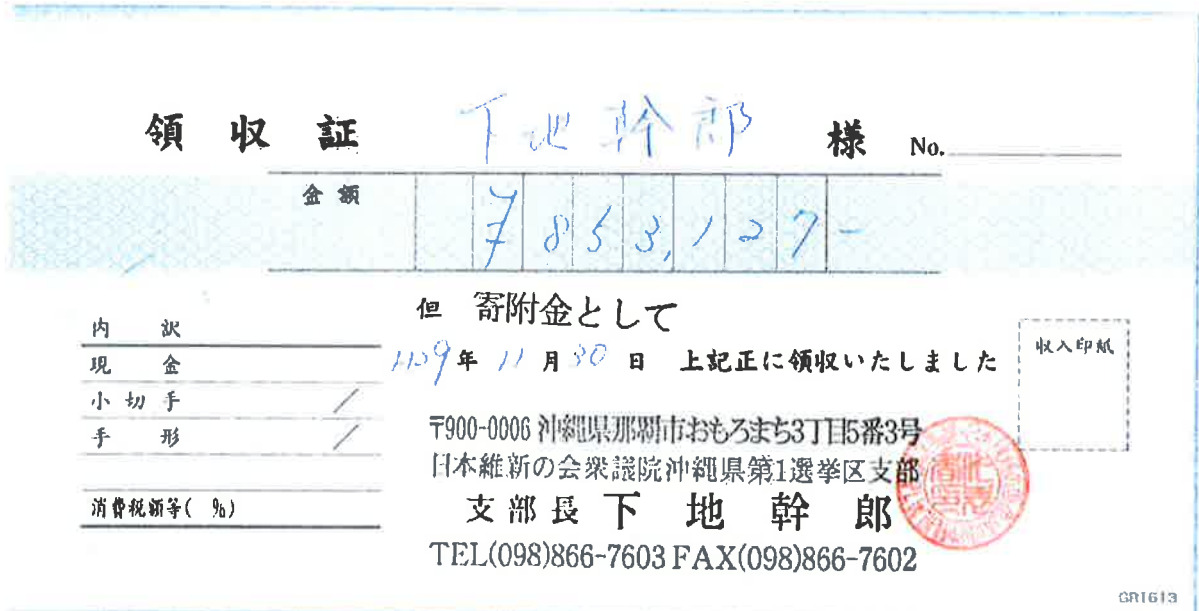 領収証 下地幹郎 様 No.
金額 7853,127-
但 寄附金として
内訳
現金
小切手 /
手形 /
消費税額等( %)
H29年 11月30日 上記正に領収いたしました
収入印紙
〒900-0006 沖縄県那覇市おもろまち3丁目5番3号
日本維新の会衆議院沖縄県第1選挙区支部
支部長 下地幹郎
TEL(098)866-7603 FAX(098)866-7602
GR1613